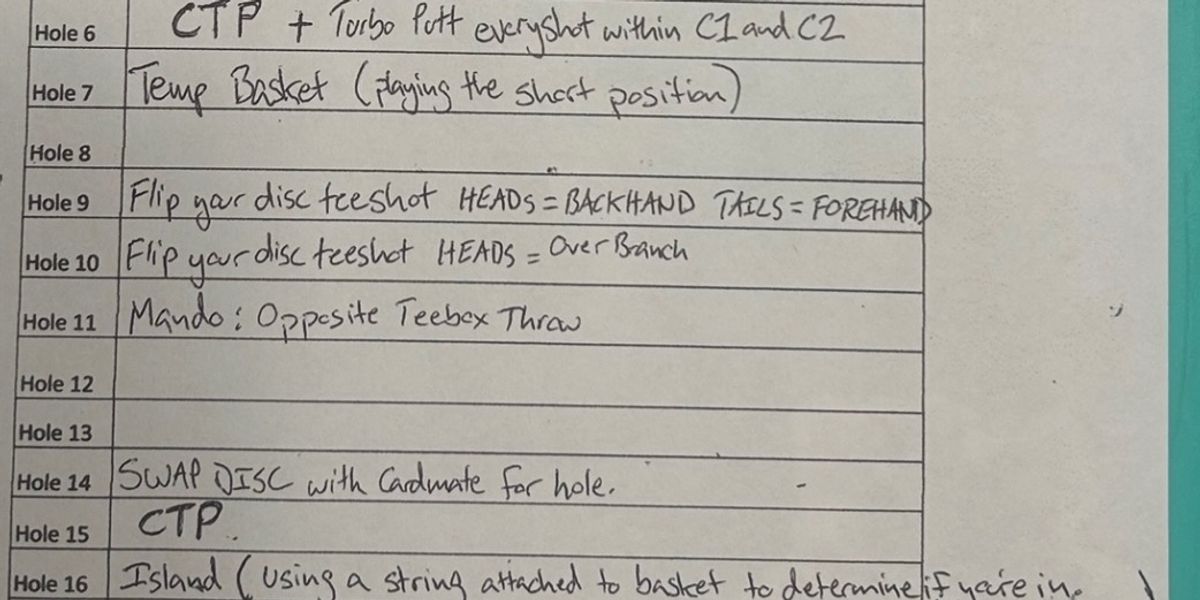 Hole 6 CTP + Turbo Putt everyshot within C1 and C2
Hole 7 Temp Basket (playing the short position)
Hole 8
Hole 9 Flip your disc teeshot HEADS = BACKHAND TAILS = FOREHAND
Hole 10 Flip your disc teeshot HEADS = Over Branch
Hole 11 Mando: Opposite Teebox Throw
Hole 12
Hole 13
Hole 14 SWAP DISC with Cardmate for hole.
Hole 15 CTP.
Hole 16 Island (using a string attached to basket to determine if you're in. )